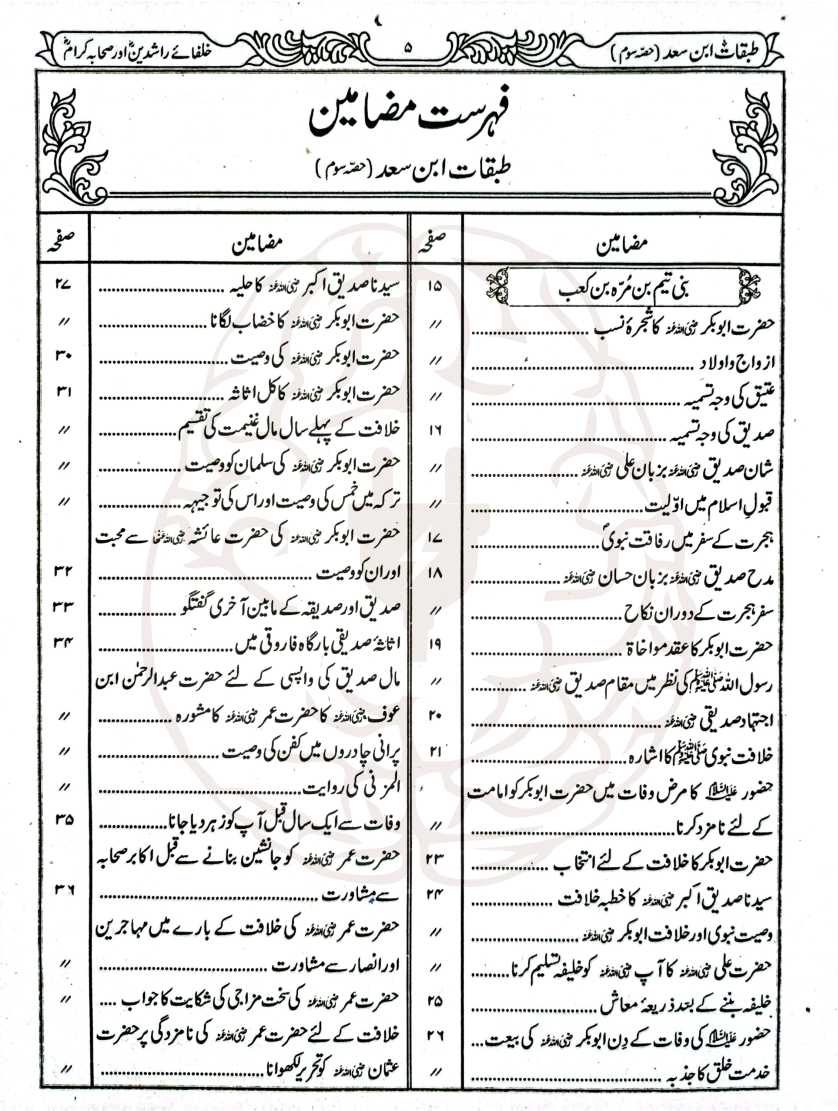 طبقات ابن سعد (حصہ سوم)
۵
خلفائے راشدینؓ اور صحابہ کرامؓ
فہرست مضامین
طبقات ابن سعد (حصہ سوم)
مضامین صفحہ
بنی تیم بن مُرّہ بن کعب ۱۵
حضرت ابوبکر رضی اللہ عنہ کا شجرۂ نسب ........ //
ازواج و اولاد ........ //
عتیق کی وجہ تسمیہ ........ //
صدیق کی وجہ تسمیہ ........ ۱۶
شان صدیق رضی اللہ عنہ بزبان علی رضی اللہ عنہ ........ //
قبولِ اسلام میں اوّلیت ........ //
ہجرت کے سفر میں رفاقت نبویؐ ........ ۱۷
مدح صدیق رضی اللہ عنہ بزبان حسان رضی اللہ عنہ ........ ۱۸
سفر ہجرت کے دوران نکاح ........ //
حضرت ابوبکر کا عقد مواخاۃ ........ ۱۹
رسول اللہ صلی اللہ علیہ وسلم کی نظر میں مقام صدیق رضی اللہ عنہ ........ //
اجتہاد صدیقی رضی اللہ عنہ ........ ۲۰
خلافت نبوی صلی اللہ علیہ وسلم کا اشارہ ........ ۲۱
حضور علیہ السلام کا مرض وفات میں حضرت ابوبکر کو امامت
کے لئے نامزد کرنا ........ //
حضرت ابوبکر کا خلافت کے لئے انتخاب ........ ۲۳
سیدنا صدیق اکبر رضی اللہ عنہ کا خطبہ خلافت ........ ۲۴
وصیت نبوی اور خلافت ابوبکر رضی اللہ عنہ ........ //
حضرت علی رضی اللہ عنہ کا آپ رضی اللہ عنہ کو خلیفہ تسلیم کرنا ........ //
خلیفہ بننے کے بعد ذریعۂ معاش ........ ۲۵
حضور علیہ السلام کی وفات کے دِن ابوبکر رضی اللہ عنہ کی بیعت ... ۲۶
خدمت خلق کا جذبہ ........ //
مضامین صفحہ
سیدنا صدیق اکبر رضی اللہ عنہ کا حلیہ ........ ۲۷
حضرت ابوبکر رضی اللہ عنہ کا خضاب لگانا ........ //
حضرت ابوبکر رضی اللہ عنہ کی وصیت ........ ۳۰
حضرت ابوبکر رضی اللہ عنہ کا کل اثاثہ ........ ۳۱
خلافت کے پہلے سال مال غنیمت کی تقسیم ........ //
حضرت ابوبکر رضی اللہ عنہ کی سلمان کو وصیت ........ //
ترکہ میں خمس کی وصیت اور اس کی توجیہہ ........ //
حضرت ابوبکر رضی اللہ عنہ کی حضرت عائشہ رضی اللہ عنہا سے محبت
اور ان کو وصیت ........ ۳۲
صدیق اور صدیقہ کے مابین آخری گفتگو ........ ۳۳
اثاثۂ صدیقی بارگاہ فاروقی میں ........ ۳۴
مال صدیق کی واپسی کے لئے حضرت عبدالرحمٰن ابن
عوف رضی اللہ عنہ کا حضرت عمر رضی اللہ عنہ کا مشورہ ........ //
پرانی چادروں میں کفن کی وصیت ........ //
المزنی کی روایت ........ //
وفات سے ایک سال قبل آپ کو زہر دیا جانا ........ ۳۵
حضرت عمر رضی اللہ عنہ کو جانشین بنانے سے قبل اکابر صحابہ
سے مشاورت ........ ۳۶
حضرت عمر رضی اللہ عنہ کی خلافت کے بارے میں مہاجرین
اور انصار سے مشاورت ........ //
حضرت عمر رضی اللہ عنہ کی سخت مزاجی کی شکایت کا جواب .... //
خلافت کے لئے حضرت عمر رضی اللہ عنہ کی نامزدگی پر حضرت
عثمان رضی اللہ عنہ کو تحریر لکھوانا ........ //